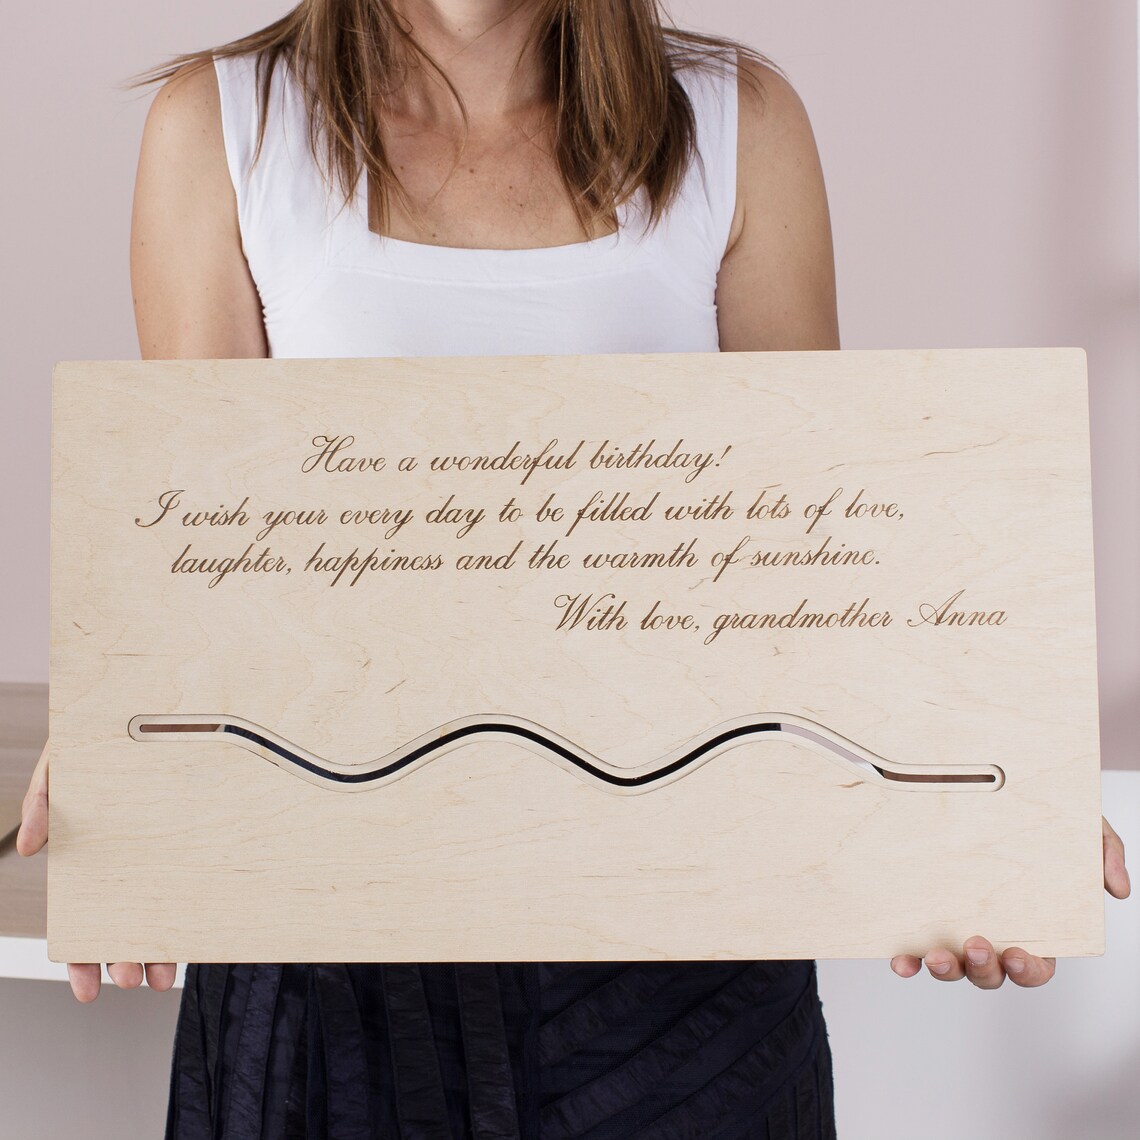 Have a wonderful birthday!
I wish your every day to be filled with lots of love,
laughter, happiness and the warmth of sunshine.
With love, grandmother Anna